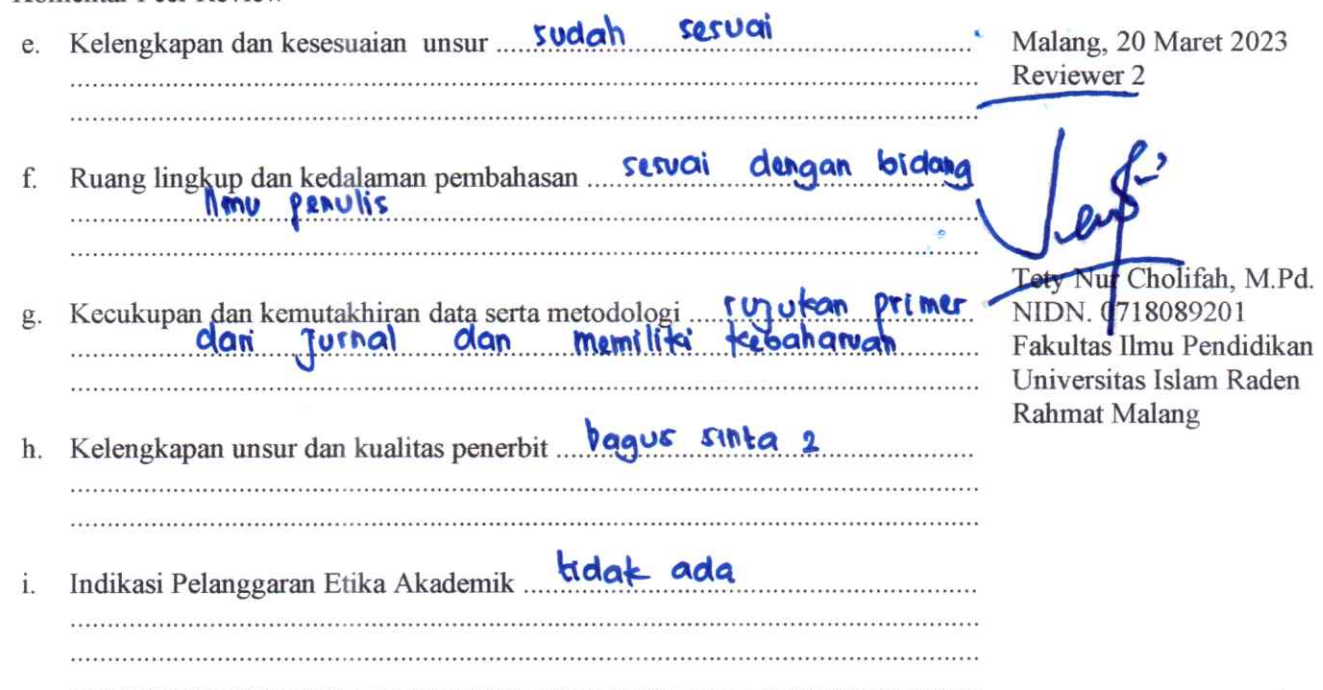 e. Kelengkapan dan kesesuaian unsur ..... sudah sesuai
f. Ruang lingkup dan kedalaman pembahasan ..... sesuai dengan bidang
Ilmu penulis
g. Kecukupan dan kemutakhiran data serta metodologi ..... rujukan primer
dari Jurnal dan memiliki kebaharuan
h. Kelengkapan unsur dan kualitas penerbit ..... bagus sinta 2
i. Indikasi Pelanggaran Etika Akademik ..... tidak ada
Malang, 20 Maret 2023
Reviewer 2
Tety Nur Cholifah, M.Pd.
NIDN. 0718089201
Fakultas Ilmu Pendidikan
Universitas Islam Raden
Rahmat Malang